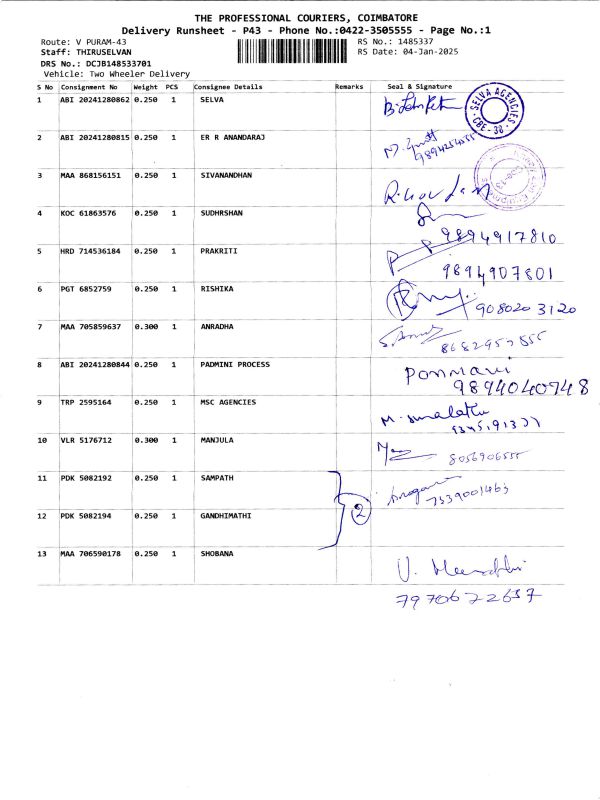 THE PROFESSIONAL COURIERS, COIMBATORE
Delivery Runsheet - P43 - Phone No.:0422-3505555 - Page No.:1
Route: V PURAM-43 RS No.: 1485337
Staff: THIRUSELVAN RS Date: 04-Jan-2025
DRS No.: DCJB148533701
Vehicle: Two Wheeler Delivery
S No Consignment No Weight PCS Consignee Details Remarks Seal & Signature
1 ABI 20241280862 0.250 1 SELVA
SELVA AGENCIES
CBE - 38
2 ABI 20241280815 0.250 1 ER R ANANDARAJ
3 MAA 868156151 0.250 1 SIVANANDHAN
4 KOC 61863576 0.250 1 SUDHRSHAN
9894917810
5 HRD 714536184 0.250 1 PRAKRITI
9894907801
6 PGT 6852759 0.250 1 RISHIKA
908020 3120
7 MAA 705859637 0.300 1 ANRADHA
8 ABI 20241280844 0.250 1 PADMINI PROCESS
Ponmani
9894040748
9 TRP 2595164 0.250 1 MSC AGENCIES
10 VLR 5176712 0.300 1 MANJULA
8056906555
11 PDK 5082192 0.250 1 SAMPATH
7339001463
2
12 PDK 5082194 0.250 1 GANDHIMATHI
13 MAA 706590178 0.250 1 SHOBANA
7970672657